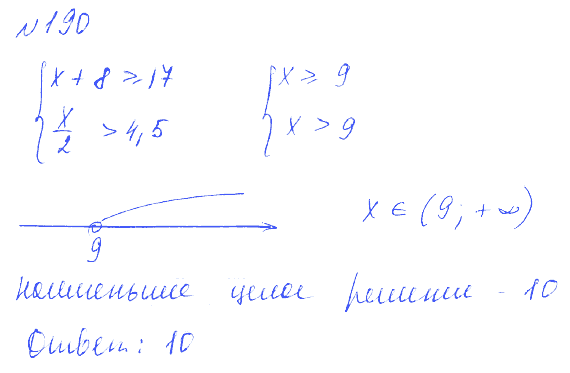 №190
{ x + 8 ≥ 17 { x ≥ 9
x/2 > 4,5 x > 9
9
x ∈ (9; +∞)
наименьшее целое решение - 10
Ответ: 10